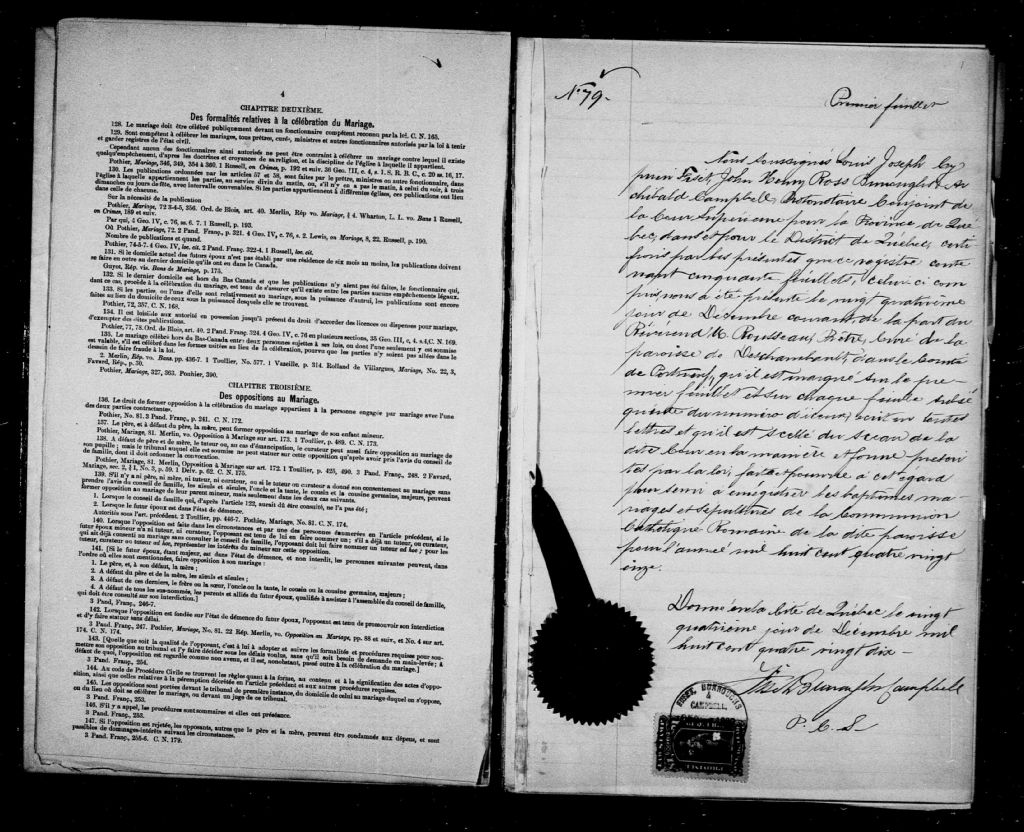 4
CHAPITRE DEUXIÈME.
Des formalités relatives à la célébration du Mariage.
128. Le mariage doit être célébré publiquement devant un fonctionnaire compétent reconnu par la loi. C. N. 165.
129. Sont compétent à célébrer les mariages, tous prêtres, curés, ministres et autres fonctionnaires autorisés par la loi à tenir
et garder registres de l'état civil.
Cependant aucun des fonctionnaires ainsi autorisés ne peut être contraint à célébrer un mariage contre lequel il existe
quelqu'empêchement, d'après les doctrines et croyances de sa religion, et la discipline de l'église à laquelle il appartient.
Pothier, Mariage, 346, 349, 354 à 360. 1 Russell, en Crimes, p. 192 et suiv. 36 Geo. III, c. 4, s. 1. S. R. B. C., c. 20 ss. 16, 17.
130. Les publications ordonnées par les articles 57 et 58, sont faites par le prêtre, ministre ou autre fonctionnaire, dans
l'église à laquelle appartiennent les parties, au service divin du matin, ou, s'il n'y en a pas le matin, à celui du soir, à trois
dimanches ou jours de fête, avec intervalle convenables. Si les parties appartiennent à différentes églises, ces publications ont lieu
dans celle de chacune.
Sur la nécessité de la publication
Pothier, Mariage, 72 3-4-5, 356. Ord. de Blois, art. 40. Merlin, Rép vo. Mariage, § 4. Wharton, L. L. vo. Bans 1 Russell,
en Crimes, 189 et suiv.
Par qui, 4 Geo. IV, c. 76, ss. 6, 7. 1 Russell, p. 193.
Où Pothier, Mariage, 72. 2 Pand. Franç., p. 321. 4 Geo. IV, c. 76, s. 2. Lewis, on Mariage, 8, 22. Russell, p. 190.
Nombre de publications et quand.
Pothier, 74-5-7. 4 Geo. IV, loc. cit. 2 Pand. Franç. 322-4. 1 Russell, loc. cit.
131. Si le domicile actuel des futurs époux n'est pas établi par une résidence de six mois au moins, les publications doivent
se faire en outre au dernier domicile qu'ils ont eu dans le Canada.
Guyot, Rép. vis. Bans de Mariage, p. 175.
132. Si le dernier domicile est hors du Bas-Canada et que les publications n'y aient pas été faites, le fonctionnaire qui,
dans ce cas, procède à la célébration du mariage, est tenu de s'assurer qu'il existe entre les parties aucune empêchements légaux.
133. Si les parties, ou l'une d'elles sont relativement au mariage, sous la puissance d'autrui, les publications sont encore
faites au lieu du domicile de ceux sous la puissance desquels elle se trouvent.
Pothier, 72, 357. C. N. 168.
134. Il est loisible aux autorité en possession jusqu'à présent du droit d'accorder des licences ou dispenses pour mariage,
d'exempter des dites publications.
Pothier, 77, 78. Ord. de Blois, art. 40. 2 Pand. Franç. 324. 4 Geo. IV, c. 76 en plusieurs sections, 35 Geo. III, c. 4, s 4, C. N. 169.
135. Le mariage célébré hors du Bas-Canada entre deux personnes sujettes à ses lois, ou dont l'une seulement y est soumise
est valable, s'il est célébré dans les formes usitées au lieu de la célébration, pourvu que les parties n'y soient pas allées dans le
dessein de faire fraude à la loi.
2. Merlin, Rép. vo. Bans. pp. 436-7. 1 Toullier, No. 577. 1 Vazeille, p. 314. Rolland de Villargues, Mariage, No. 22, 3,
Favard, Rép., p. 50.
Pothier, Mariage, 327, 363. Ponthier, 390.
CHAPITRE TROISIÈME.
Des oppositions au Mariage.
136. Le droit de former opposition à la célébration du mariage appartient à la personne engagée par mariage avec l'une
des deux parties contractantes.
Pothier, No. 81. 3 Pand. Franç., p. 241. C. N. 172.
137. Le père, et à défaut du père, la mère, peut former opposition au mariage de son enfant mineur.
Pothier, Mariage, 81. Merlin, vo. Opposition à Mariage sur art. 173. 1 Toullier, p. 489. C. N. 173.
138. A défaut de père et de mère, le tuteur ou, au cas d'émancipation, le curateur peut aussi faire opposition au mariage de
son pupille ; mais le tribunal auquel elle est soumise ne peut statuer sur cette opposition qu'après avoir pris l'avis du conseil de
famille, dont il doit ordonner la convocation.
Pothier, Mariage, 81. Merlin, Opposition à Mariage sur art. 172. 1 Toullier, p. 425, 490. 3 Pand. Franç., 248. 2 Favard,
Mariage, sec. 2, § 1, No. 3, p. 59. 1 Delv. p. 62. C. N. 175.
139. S'il n'y a ni père, ni mère, ni tuteur, ni curateur, ou si le tuteur ou curateur a donné son consentement au mariage sans
prendre l'avis du conseil de famille, les aïeuls et aïeules, l'oncle et la tante, le cousin et la cousine germains, majeurs, peuvent
former opposition au mariage de leur parent mineur, mais seulement dans les deux cas suivants.
1. Lorsque le conseil de famille qui, d'après l'article 122, aurait dû être consulté, ne l'a pas été ;
2. Lorsque le futur époux est dans l'état de démence.
Autorités sous l'art. précédent 2 Toullier, pp. 446-7. Pothier, Mariage, No. 81. C. N. 174.
140. Lorsque l'opposition est faite dans les circonstances et par une des personnes énumérées en l'article précédent, si le
futur époux mineur n'a ni tuteur, ni curateur, l'opposant est tenu de lui en faire nommer un ; s'il a déjà un tuteur, ou curateur,
qui ait déjà consenti au mariage sans consulter le conseil de famille, l'opposant doit lui faire nommer un tuteur ad hoc ; pour les
tuteur, curateur ou tuteur ad hoc, représente les intérêts du mineur sur cette opposition.
141. [Si le futur époux, étant majeur, est dans l'état de démence, et non interdit, les personnes suivantes peuvent, dans
l'ordre où elles sont mentionnées, faire opposition à son mariage :
1. Le père, et, à son défaut, la mère ;
2. A défaut du père et de la mère, les aïeuls et aïeules ;
3. A défaut de ces derniers, le frère ou la sœur, l'oncle ou la tante, le cousin ou la cousine germains, majeurs ;
4. A défaut de tous les sus-nommés, les parents et alliés du futur époux, qualifiés à assister à l'assemblée du conseil de famille,
qui doit être consulté sur son interdiction.]
3 Pand, Franç., 246-7.
142. Lorsque l'opposition est fondée sur l'état de démence du futur époux, l'opposant est tenu de promouvoir son interdiction
et d'y faire statuer sans délai.
3 Pand. Franç., 247. Pothier, Mariage, No. 81. 22 Rép. Merlin, vo. Opposition au Mariage, pp. 88 et suiv., et No. 4 sur art.
174. C. N. 174.
143. [Quelle que soit la qualité de l'opposant, c'est à lui à adopter et suivre les formalités et procédures requises pour sou-
mettre son opposition au tribunal et l'y faire décider sous les délais voulus, sans qu'il soit besoin de demande en main-levée ; à
défaut de quoi, l'opposition est regardée comme non avenu, et il est, nonobstant, passé outre à la célébration du mariage.]
3 Pand. Franç., 254.
144. Au code de Procédure Civile se trouvent les règles quant à la forme, au contenu et à la signification des actes d'oppo-
sition, ainsi que celles relatives à la péremption décrétée en l'article précédent et aux autres procédures requises.
145. Les oppositions sont portées devant le tribunal de première instance, du domicile de celui au mariage duquel on s'oppose,
ou du lieu où doit se célébrer le mariage, ou devant un juge de ce tribunal.
3 Pand. Franç., 253.
146. S'il y a appel, les procédures sont sommaires et elles ont préséance.
3 Pand. Franç., 253.
147. Si l'opposition est rejetée, les opposants, autres que le père et la mère, peuvent être condamnés aux dépens, et sont
passibles de dommages-intérêts suivant les circonstances.
3 Pand. Franç., 255-6. C. N. 179.
No 79.
Premier feuillet
Nous soussignés Louis Joseph Cy
prien Fiset, John Henry Ross Burroughs & Ar
chibald Campbell, Protonotaire Conjoint de
la Cour Supérieure pour la Province de Qué
bec, dans et pour le District de Québec, certi
fions par les présentes que ce registre conte
nant cinquante feuillets, celui-ci com
pris, nous a été présenté le vingt quatrième
jour de Décembre courant, de la part du
Révérend M. Rousseau, Prêtre, Curé de la
paroisse de Deschambault, dans le Comté
de Portneuf, qu'il est marqué sur le pre-
mier feuillet et sur chaque feuille subsé
quente du numéro d'icelui, écrit en toutes
lettres et qu'il est scellé du sceau de la
dite Cour en la manière et forme prescri
tes par la loi, fait et pourvu à cet égard
pour servir à enregistrer les baptêmes ma-
riages et sépultures de la Communion
Catholique Romaine de la dite paroisse
pour l'année mil huit cent quatre vingt
onze.
Donné en la Cité de Québec le vingt
quatrième jour de Décembre mil
huit cent quatre vingt dix —
Fiset Burroughs Campbell
P. C. S
FISET, BURROUGHS
&
CAMPBELL